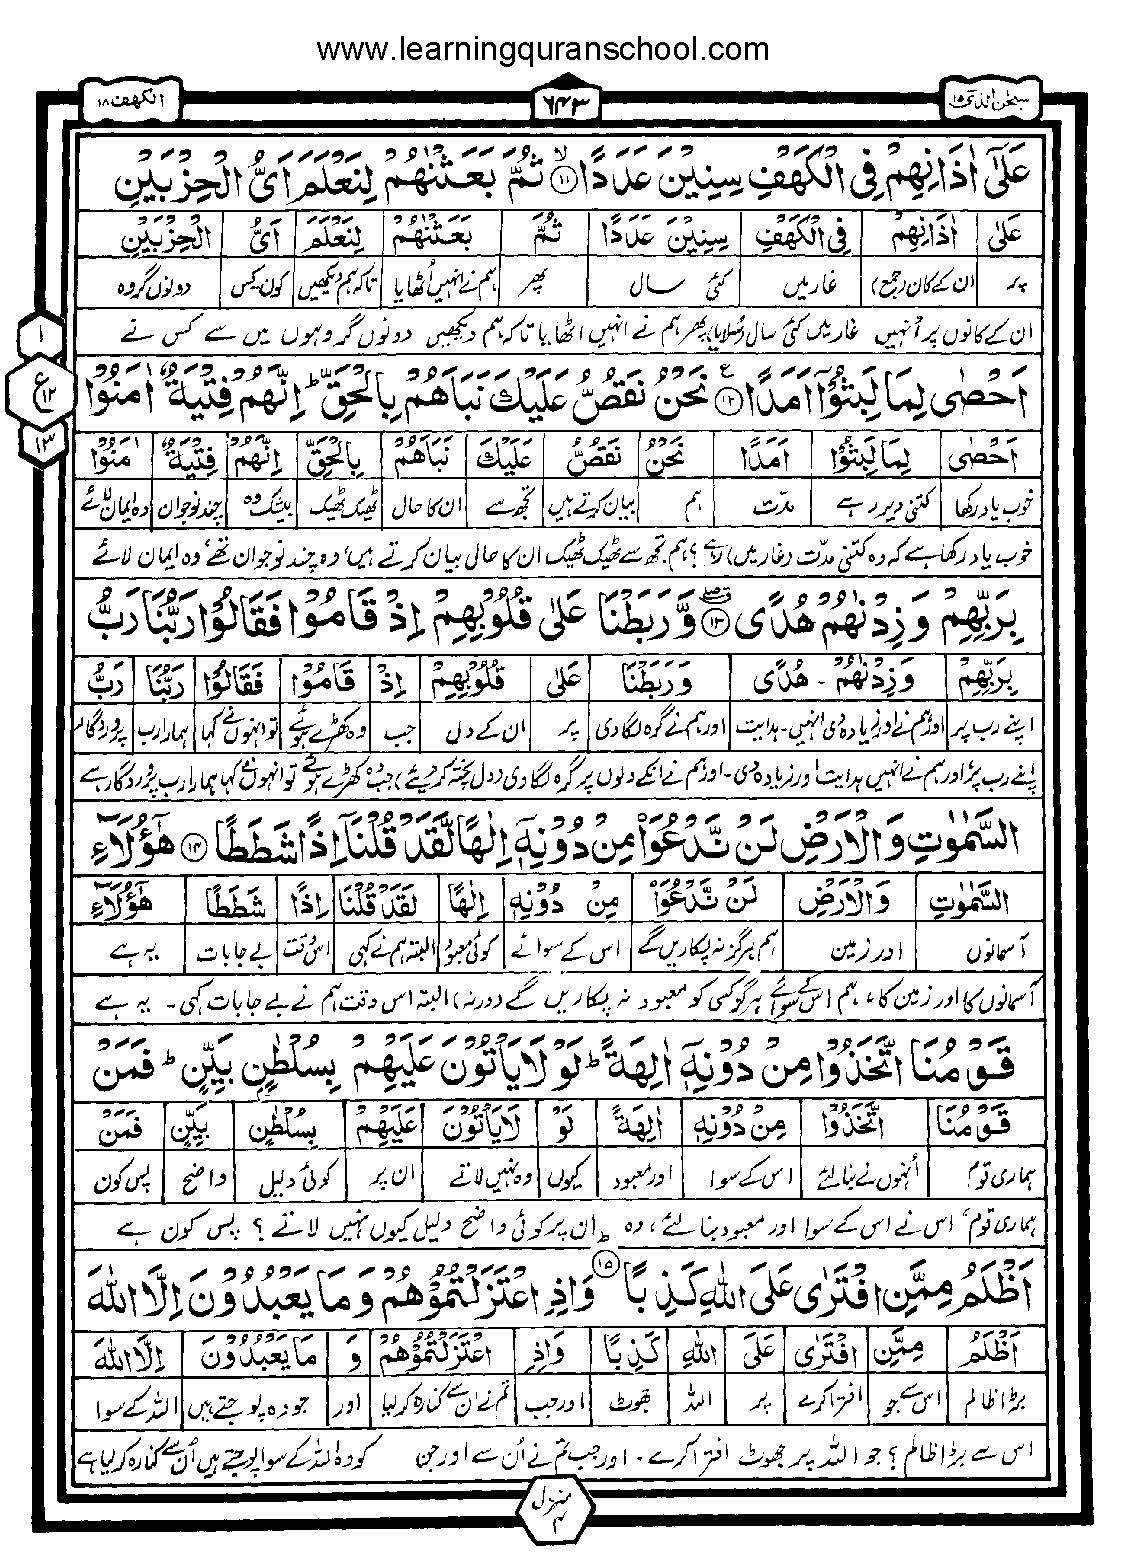 www.learningquranschool.com
سبحٰن الذی ۱۵
۶۴۳
الکھف ۱۸
عَلٰٓی اٰذَانِهِمْ فِی الْكَهْفِ سِنِیْنَ عَدَدًا ۙ۱۱ ثُمَّ بَعَثْنٰهُمْ لِنَعْلَمَ اَیُّ الْحِزْبَیْنِ
عَلٰی اٰذَانِهِمْ فِی الْكَهْفِ سِنِیْنَ عَدَدًا ثُمَّ بَعَثْنٰهُمْ لِنَعْلَمَ اَیُّ الْحِزْبَیْنِ
پر ان کے کان (جمع) غار میں کئی سال پھر ہم نے انہیں اُٹھایا تاکہ ہم دیکھیں کون۔کس دونوں گروہ
ان کے کانوں پر انہیں غار میں کئی سال (سُلایا) پھر ہم نے انہیں اٹھایا تاکہ ہم دیکھیں دونوں گروہوں میں سے کس نے
۱
ع ۱۲
۱۳
اَحْصٰی لِمَا لَبِثُوْۤا اَمَدًا ۠۱۲ نَحْنُ نَقُصُّ عَلَیْكَ نَبَاَهُمْ بِالْحَقِّ ؕ اِنَّهُمْ فِتْیَةٌ اٰمَنُوْا
اَحْصٰی لِمَا لَبِثُوْۤا اَمَدًا نَحْنُ نَقُصُّ عَلَیْكَ نَبَاَهُمْ بِالْحَقِّ اِنَّهُمْ فِتْیَةٌ اٰمَنُوْا
خوب یاد رکھا کتنی دیر رہے مدّت ہم بیان کرتے ہیں تجھ سے ان کا حال ٹھیک ٹھیک بیشک وہ چند نوجوان وہ ایمان لائے
خوب یاد رکھا ہے کہ وہ کتنی مدّت (غار میں) رہے؟ ہم تجھ سے ٹھیک ٹھیک ان کا حال بیان کرتے ہیں، وہ چند نوجوان تھے، وہ ایمان لائے
بِرَبِّهِمْ وَزِدْنٰهُمْ هُدًی ۱۳ وَّرَبَطْنَا عَلٰی قُلُوْبِهِمْ اِذْ قَامُوْا فَقَالُوْا رَبُّنَا رَبُّ
بِرَبِّهِمْ وَزِدْنٰهُمْ ۔ هُدًی وَرَبَطْنَا عَلٰی قُلُوْبِهِمْ اِذْ قَامُوْا فَقَالُوْا رَبُّنَا رَبُّ
اپنے رب پر اور ہم نے اور زیادہ دی انہیں۔ہدایت اور ہم نے گرہ لگا دی پر ان کے دل جب وہ کھڑے ہوئے تو انہوں نے کہا ہمارا رب پروردگار
اپنے رب پر اور ہم نے انہیں ہدایت اور زیادہ دی۔ اور ہم نے انکے دلوں پر گرہ لگا دی (دل پختہ کر دیئے) جب وہ کھڑے ہوئے تو انہوں نے کہا ہمارا رب پروردگار ہے
السَّمٰوٰتِ وَالْاَرْضِ لَنْ نَّدْعُوَا مِنْ دُوْنِهٖۤ اِلٰهًا لَّقَدْ قُلْنَاۤ اِذًا شَطَطًا ۱۴ هٰۤؤُلَآءِ
السَّمٰوٰتِ وَالْاَرْضِ لَنْ نَّدْعُوَا مِنْ دُوْنِهٖۤ اِلٰهًا لَقَدْ قُلْنَا اِذًا شَطَطًا هٰۤؤُلَآءِ
آسمانوں اور زمین ہم ہرگز نہ پکاریں گے اس کے سوائے کوئی معبود البتہ ہم نے کہی اس وقت بے جا بات یہ ہے
آسمانوں کا اور زمین کا، ہم اس کے سوائے ہرگز کسی کو معبود نہ پکاریں گے (ورنہ) البتہ اس وقت ہم نے بے جا بات کہی۔ یہ ہے
قَوْمُنَا اتَّخَذُوْا مِنْ دُوْنِهٖۤ اٰلِهَةً ؕ لَوْ لَا یَاْتُوْنَ عَلَیْهِمْ بِسُلْطٰنٍۭ بَیِّنٍ ؕ فَمَنْ
قَوْمُنَا اتَّخَذُوْا مِنْ دُوْنِهٖۤ اٰلِهَةً لَوْ لَا یَاْتُوْنَ عَلَیْهِمْ بِسُلْطٰنٍ بَیِّنٍ فَمَنْ
ہماری قوم اُنہوں نے بنا لئے اس کے سوا اور معبود کیوں وہ نہیں لاتے ان پر کوئی دلیل واضح پس کون
ہماری قوم، اس نے اس کے سوا اور معبود بنا لئے، وہ ان پر کوئی واضح دلیل کیوں نہیں لاتے؟ پس کون ہے
اَظْلَمُ مِمَّنِ افْتَرٰی عَلَی اللهِ كَذِبًا ۱۵ وَاِذِ اعْتَزَلْتُمُوْهُمْ وَمَا یَعْبُدُوْنَ اِلَّا اللهَ
اَظْلَمُ مِمَّنِ افْتَرٰی عَلَی اللهِ كَذِبًا وَاِذِ اعْتَزَلْتُمُوْهُمْ وَ مَا یَعْبُدُوْنَ اِلَّا اللهَ
بڑا ظالم اس سے جو افترا کرے پر اللہ جھوٹ اور جب تم نے ان سے کنارہ کر لیا اور جو وہ پوجتے ہیں اللہ کے سوا
اس سے بڑا ظالم؟ جو اللہ پر جھوٹ افترا کرے۔ اور جب تم نے اُن سے اور جن کو وہ اللہ کے سوا پوجتے ہیں اُن سے کنارہ کر لیا ہے
منزل
۴